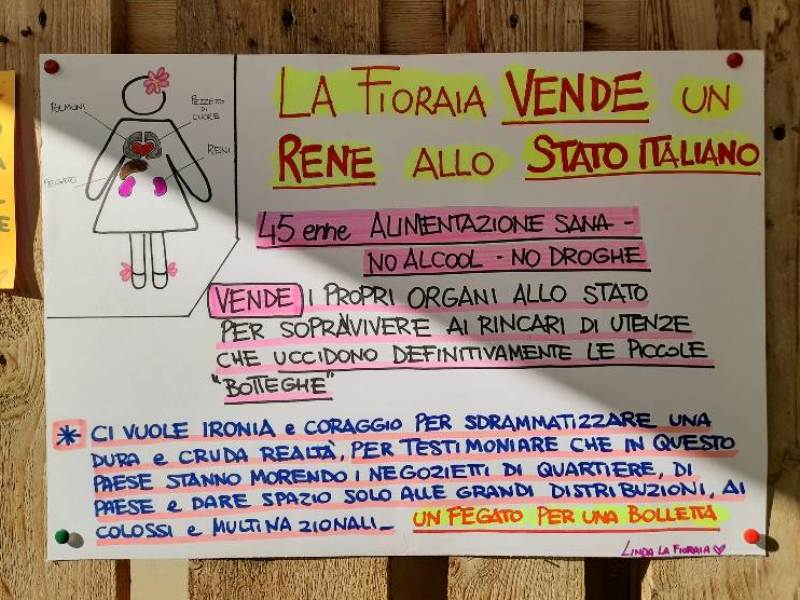 LA FIORAIA VENDE UN
RENE ALLO STATO ITALIANO
POLMONI
PEZZETTI DI CUORE
RENI
FEGATO
45 enne ALIMENTAZIONE SANA -
NO ALCOOL - NO DROGHE
VENDE I PROPRI ORGANI ALLO STATO
PER SOPRAVIVERE AI RINCARI DI UTENZE
CHE UCCIDONO DEFINITIVAMENTE LE PICCOLE
"BOTTEGHE"
* CI VUOLE IRONIA e CORAGGIO PER SDRAMMATIZZARE UNA
DURA e CRUDA REALTÀ, PER TESTIMONIARE CHE IN QUESTO
PAESE STANNO MORENDO I NEGOZIETTI DI QUARTIERE, DI
PAESE e DARE SPAZIO SOLO ALLE GRANDI DISTRIBUZIONI, AI
COLOSSI e MULTINAZIONALI_ UN FEGATO PER UNA BOLLETTA
LINDA LA FIORAIA